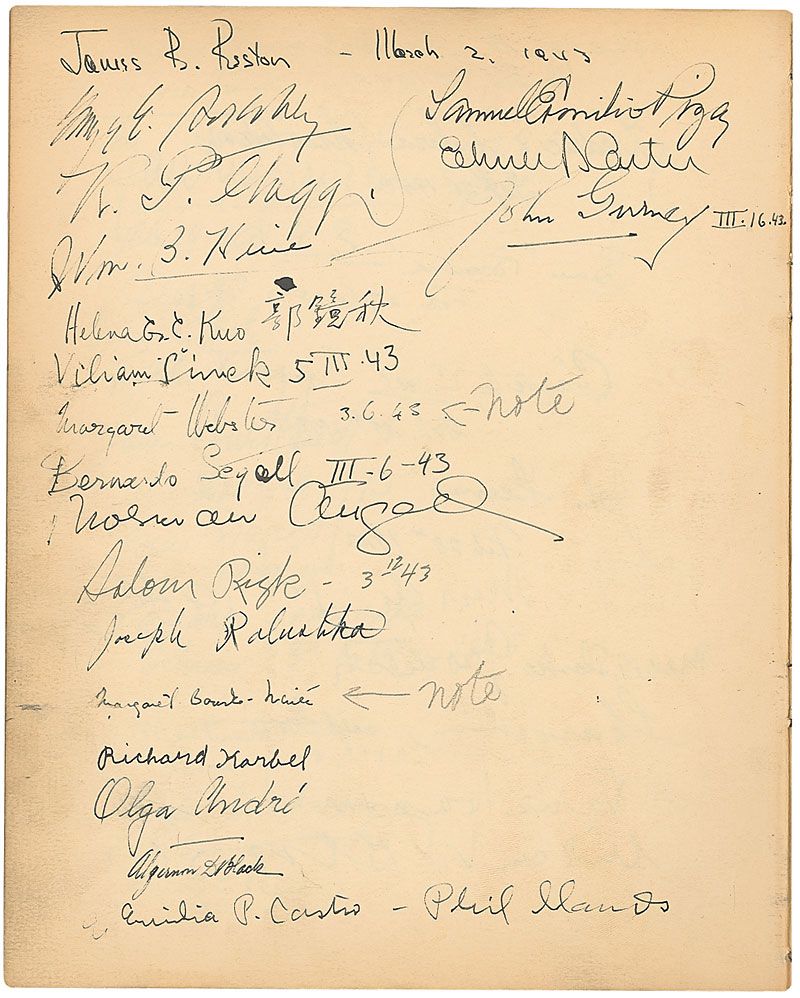 James B. Reston - March 2. 1943
Samuel Emilio Piza
Edward Carter
K. P.
John Gurney III.16.43.
Wm. B. Hine
Helena G. C. Kuo 郭鏡秋
Viliam Šimek 5 III.43
Margaret Webster 3.6.43 ← note
Bernardo Segall III-6-43
Norman Angell
Salom Rizk - 3 12 43
Joseph
Margaret Bourke-White ← note
Richard Karbel
Olga André
Algernon D Black
Emilia P. Castro - Phil Islands